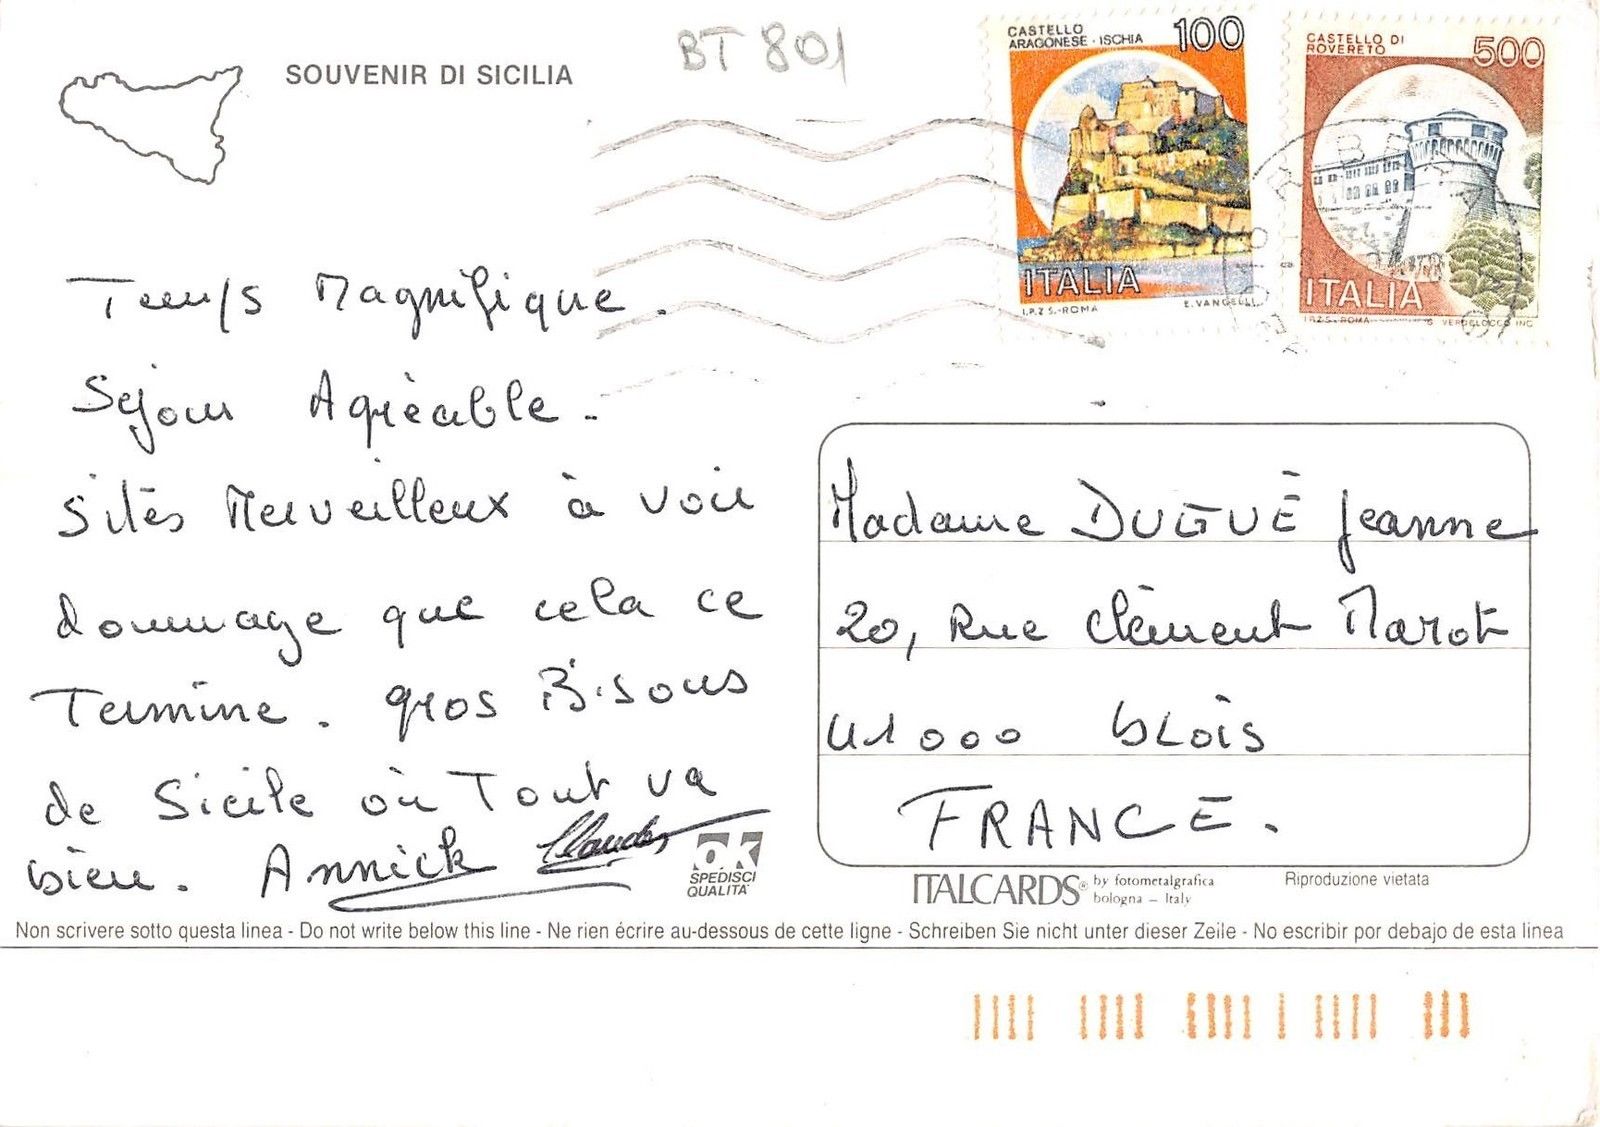 SOUVENIR DI SICILIA
BT 801
CASTELLO
ARAGONESE - ISCHIA
100
ITALIA
I.P.Z.S.-ROMA
E. VANGELLI
CASTELLO DI
ROVERETO
500
ITALIA
I.P.Z.S. - ROMA
Temps Magnifique.
Séjour Agréable.
Sites Merveilleux à voir
dommage que cela ce
Termine. gros Bisous
de Sicile où Tout va
bien. Annick Claude
Madame DUGUÉ Jeanne
20, Rue Clément Marot
41000 BLOIS
FRANCE.
ok
SPEDISCI
QUALITA'
ITALCARDS® by fotometalgrafica
bologna - Italy
Riproduzione vietata
Non scrivere sotto questa linea - Do not write below this line - Ne rien écrire au-dessous de cette ligne - Schreiben Sie nicht unter dieser Zeile - No escribir por debajo de esta linea